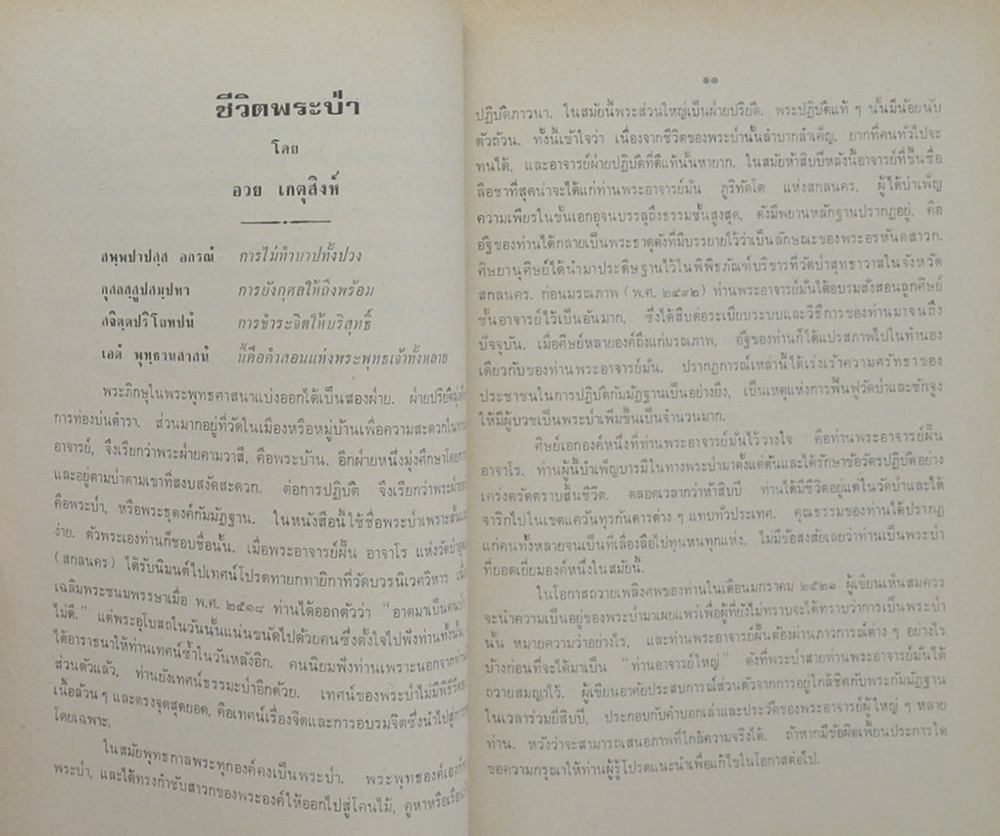 ชีวิตพระป่า
โดย
อวย เกตุสิงห์
สพฺพปาปสฺส อกรณํ การไม่ทำบาปทั้งปวง
กุสลสฺสูปสมฺปทา การยังกุศลให้ถึงพร้อม
สจิตฺตปริโยทปนํ การชำระจิตให้บริสุทธิ์
เอตํ พุทฺธานสาสนํ นี้คือคำสอนแห่งพระพุทธเจ้าทั้งหลาย
พระภิกษุในพระพุทธศาสนาแบ่งออกได้เป็นสองฝ่าย. ฝ่ายปริยัติมุ่ง
การท่องบ่นตำรา. ส่วนมากอยู่ที่วัดในเมืองหรือหมู่บ้านเพื่อความสะดวกใน
อาจารย์, จึงเรียกว่าพระฝ่ายคามวาสี, คือพระบ้าน. อีกฝ่ายหนึ่งมุ่งศึกษาโดย
และอยู่ตามป่าตามเขาที่สงบสงัดสะดวก. ต่อการปฏิบัติ จึงเรียกว่าพระฝ่าย
คือพระป่า, หรือพระธุดงค์กัมมัฏฐาน. ในหนังสือนี้ใช้ชื่อพระป่าเพราะสั้น
ง่าย. ตัวพระเองท่านก็ชอบชื่อนั้น. เมื่อพระอาจารย์ฝั้น อาจาโร แห่งวัดป่า
(สกลนคร) ได้รับนิมนต์ไปเทศน์โปรดทายกทายิกาที่วัดบวรนิเวศวิหาร
เฉลิมพระชนมพรรษาเมื่อ พ.ศ. ๒๕๑๘ ท่านได้ออกตัวว่า “อาตมาเป็น
ไม่ดี.” แต่พระอุโบสถในวันนั้นแน่นขนัดไปด้วยคนซึ่งตั้งใจไปฟังท่านทั้งนั้น
ได้อาราธนาให้ท่านเทศน์ซ้ำในวันหลังอีก. คนนิยมฟังท่านเพราะนอกจาก
ส่วนตัวแล้ว, ท่านยังเทศน์ธรรมะป่าอีกด้วย. เทศน์ของพระป่าไม่มีพิธีรีตอง
เนื้อล้วนๆ และตรงจุดสุดยอด, คือเทศน์เรื่องจิตและการอบรมจิตซึ่งนำไปสู่
โดยเฉพาะ.
ในสมัยพุทธกาลพระทุกองค์คงเป็นพระป่า. พระพุทธองค์เอง
พระป่า, และได้ทรงกำชับสาวกของพระองค์ให้ออกไปสู่โคนไม้, คูหาหรือเรือน
๑๑
ปฏิบัติภาวนา. ในสมัยนี้พระส่วนใหญ่เป็นฝ่ายปริยัติ. พระปฏิบัติแท้ ๆ นั้นมีน้อยนับ
ตัวถ้วน. ทั้งนี้เข้าใจว่า เนื่องจากชีวิตของพระป่านั้นลำบากลำเค็ญ, ยากที่คนทั่วไปจะ
ทนได้, และอาจารย์ฝ่ายปฏิบัติที่ดีแท้นั้นหายาก. ในสมัยห้าสิบปีหลังนี้อาจารย์ที่ขึ้นชื่อ
ลือชาที่สุดน่าจะได้แก่ท่านพระอาจารย์มั่น ภูริทัตโต แห่งสกลนคร, ผู้ได้บำเพ็ญ
ความเพียรในขั้นเอกอุจนบรรลุถึงธรรมชั้นสูงสุด, ดังมีพยานหลักฐานปรากฏอยู่. คือ
อัฐิของท่านได้กลายเป็นพระธาตุดังที่มีบรรยายไว้ว่าเป็นลักษณะของพระอรหันตสาวก.
ศิษยานุศิษย์ได้นำมาประดิษฐานไว้ในพิพิธภัณฑ์บริขารที่วัดป่าสุทธาวาสในจังหวัด
สกลนคร. ก่อนมรณภาพ (พ.ศ. ๒๔๙๒) ท่านพระอาจารย์มั่นได้อบรมสั่งสอนลูกศิษย์
ชั้นอาจารย์ไว้เป็นอันมาก, ซึ่งได้สืบต่อระเบียบระบบและวิธีการของท่านมาจนถึง
ปัจจุบัน. เมื่อศิษย์หลายองค์ถึงแก่มรณภาพ, อัฐิของท่านก็ได้แปรสภาพไปในทำนอง
เดียวกับของท่านพระอาจารย์มั่น. ปรากฏการณ์เหล่านี้ได้เร่งเร้าความศรัทธาของ
ประชาชนในการปฏิบัติกัมมัฏฐานเป็นอย่างยิ่ง, เป็นเหตุแห่งการฟื้นฟูวัดป่าและชักจูง
ให้มีผู้บวชเป็นพระป่าเพิ่มขึ้นเป็นจำนวนมาก.
ศิษย์เอกองค์หนึ่งที่ท่านพระอาจารย์มั่นไว้วางใจ คือท่านพระอาจารย์ฝั้น
อาจาโร. ท่านผู้นี้บำเพ็ญบารมีในทางพระป่ามาตั้งแต่ต้นและได้รักษาข้อวัตรปฏิบัติอย่าง
เคร่งครัดตราบสิ้นชีวิต. ตลอดเวลากว่าห้าสิบปี ท่านได้มีชีวิตอยู่แต่ในวัดป่าและได้
จาริกไปในเขตแคว้นทุรกันดารต่าง ๆ แทบทั่วประเทศ. คุณธรรมของท่านได้ปรากฏ
แก่คนทั้งหลายจนเป็นที่เลื่องลือไปทุกหนทุกแห่ง. ไม่มีข้อสงสัยเลยว่าท่านเป็นพระป่า
ที่ยอดเยี่ยมองค์หนึ่งในสมัยนี้.
ในโอกาสถวายเพลิงศพของท่านในเดือนมกราคม ๒๕๒๑ ผู้เขียนเห็นสมควร
จะนำความเป็นอยู่ของพระป่ามาเผยแพร่เพื่อผู้ที่ยังไม่ทราบจะได้ทราบว่าการเป็นพระป่า
นั้น หมายความว่าอย่างไร, และท่านพระอาจารย์ฝั้นต้องผ่านภาวการณ์ต่าง ๆ อย่างไร
บ้างก่อนที่จะได้มาเป็น “ท่านอาจารย์ใหญ่” ดังที่พระป่าสายท่านพระอาจารย์มั่นได้
ถวายสมญาไว้. ผู้เขียนอาศัยประสบการณ์ส่วนตัวจากการอยู่ใกล้ชิดกับพระกัมมัฏฐาน
ในเวลาร่วมยี่สิบปี, ประกอบกับคำบอกเล่าและประวัติของพระอาจารย์ผู้ใหญ่ ๆ หลาย
ท่าน. หวังว่าจะสามารถเสนอภาพที่ใกล้ความจริงได้. ถ้าหากมีข้อผิดเพี้ยนประการใด
ขอความกรุณาให้ท่านผู้รู้โปรดแนะนำเพื่อแก้ไขในโอกาสต่อไป.